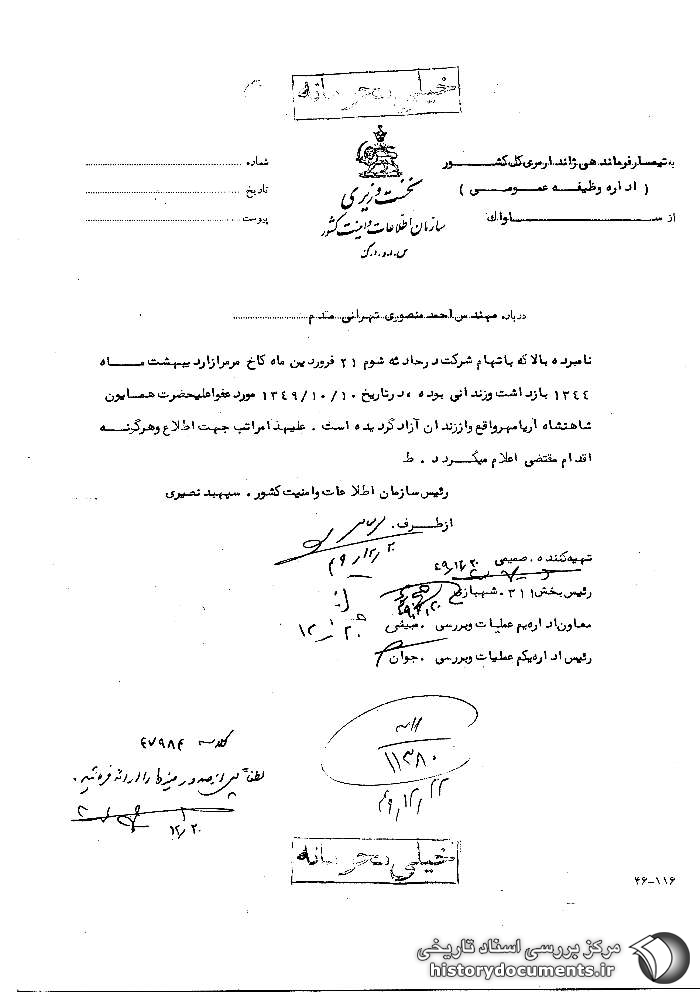 خیلی محرمانه
به تیمسار فرماندهی ژاندارمری کل کشور
( اداره وظیفه عمومی )
از ساواک
نخست وزیری
سازمان اطلاعات و امنیت کشور
س.ا.و.ا.ک
شماره
تاریخ
پیوست
درباره مهندس احمد منصوری تهرانی مقدم
نامبرده بالا که باتهام شرکت در حادثه شوم ۲۱ فروردین ماه کاخ مرمر از اردیبهشت ماه
۱۳٤٤ بازداشت و زندانی بوده ، در تاریخ ۱۳٤۹/۱۰/۱۰ مورد عفو اعلیحضرت همایون
شاهنشاه آریامهر واقع و از زندان آزاد گردیده است . علیهذا مراتب جهت اطلاع و هرگونه
اقدام مقتضی اعلام میگردد . ط
رئیس سازمان اطلاعات و امنیت کشور . سپهبد نصیری
از طرف .
۴۹/۱۲/۲۰
تهیه کننده . صمیمی ۴۹/۱۲/۲۰
رئیس بخش ۳۱۱ . شهبازی
معاون اداره یکم عملیات و بررسی . سیفی ۱۲/۲۰
رئیس اداره یکم عملیات و بررسی . جوان
۳۱۱
۱۱۳۸۰
۴۹/۱۲/۲۲
کلاسه ۴۷۹۸۴
لطفاً پس از صدور میز کا را ارائه فرمائید .
۱۲/۲۰
خیلی محرمانه
۴۶-۱۱۶
مرکز بررسی اسناد تاریخی
historydocuments.ir